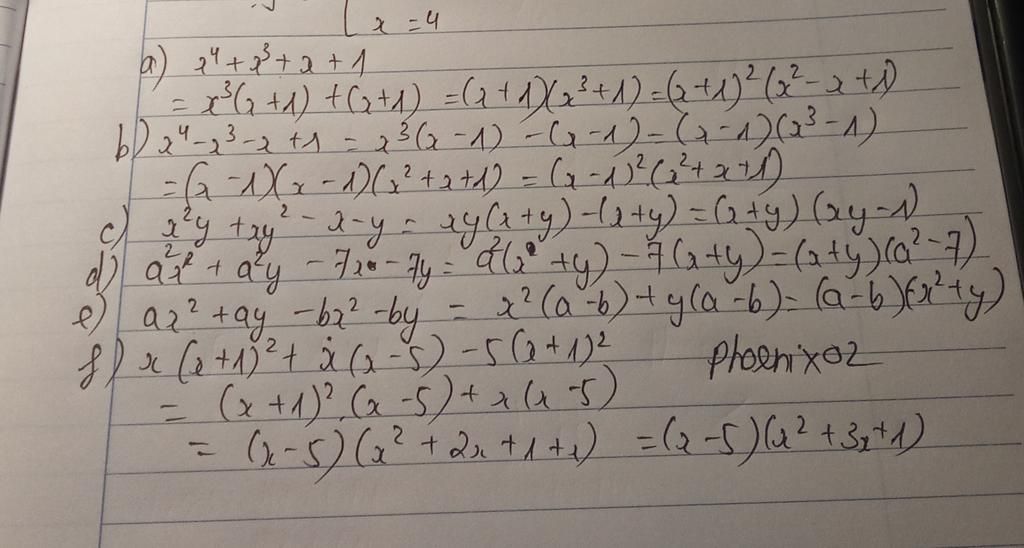 x = 4
a) x⁴ + x³ + x + 1
= x³(x+1) + (x+1) = (x+1)(x³+1) = (x+1)²(x² - x + 1)
b) x⁴ - x³ - x + 1 = x³(x - 1) - (x - 1) = (x - 1)(x³ - 1)
= (x - 1)(x - 1)(x² + x + 1) = (x - 1)²(x² + x + 1)
c) x²y + xy² - x - y = xy(x+y) - (x+y) = (x+y)(xy - 1)
d) a²x + a²y - 7x - 7y = a²(x + y) - 7(x+y) = (x+y)(a² - 7)
e) ax² + ay - bx² - by = x²(a - b) + y(a - b) = (a - b)(x² + y)
f) x(x+1)² + x(x - 5) - 5(x+1)²
phoenix02
= (x+1)².(x - 5) + x(x - 5)
= (x - 5)(x² + 2x + 1 + x) = (x - 5)(x² + 3x + 1)